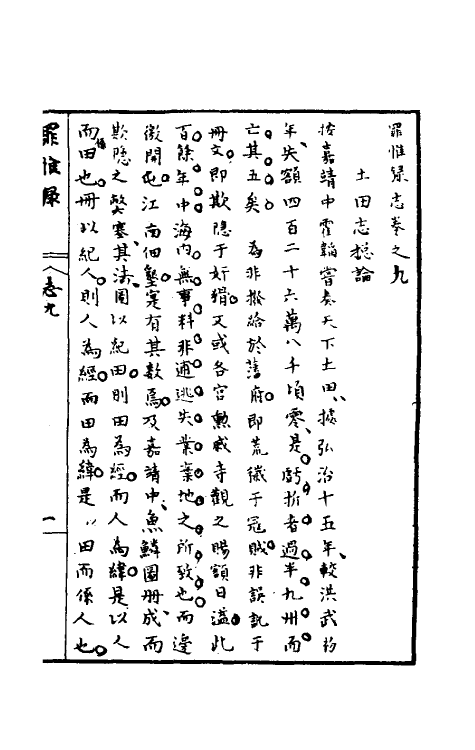 罪惟錄志卷之九
土田志總論
按嘉靖中霍韜嘗奏天下土田據弘治十五年較洪武初
年失額四百二十六萬八千頃零是虧折者過半九州而
亡其五矣為非撥給於藩府即荒穢于冦賊非誤訛于
冊文即欺隱于奸猾又或各宮勳戚寺觀之賜額日溢此
百餘年中海內無事料非逋逃失業棄地之所致也而邊
徼開屯江南佃墾寔有其數焉及嘉靖中魚鱗圖冊成而
欺隱之弊塞其法圖以紀田則田為經而人為緯是以人
而田也冊以紀人則人為經而田為緯是以田而係人也
罪惟錄
志九
一